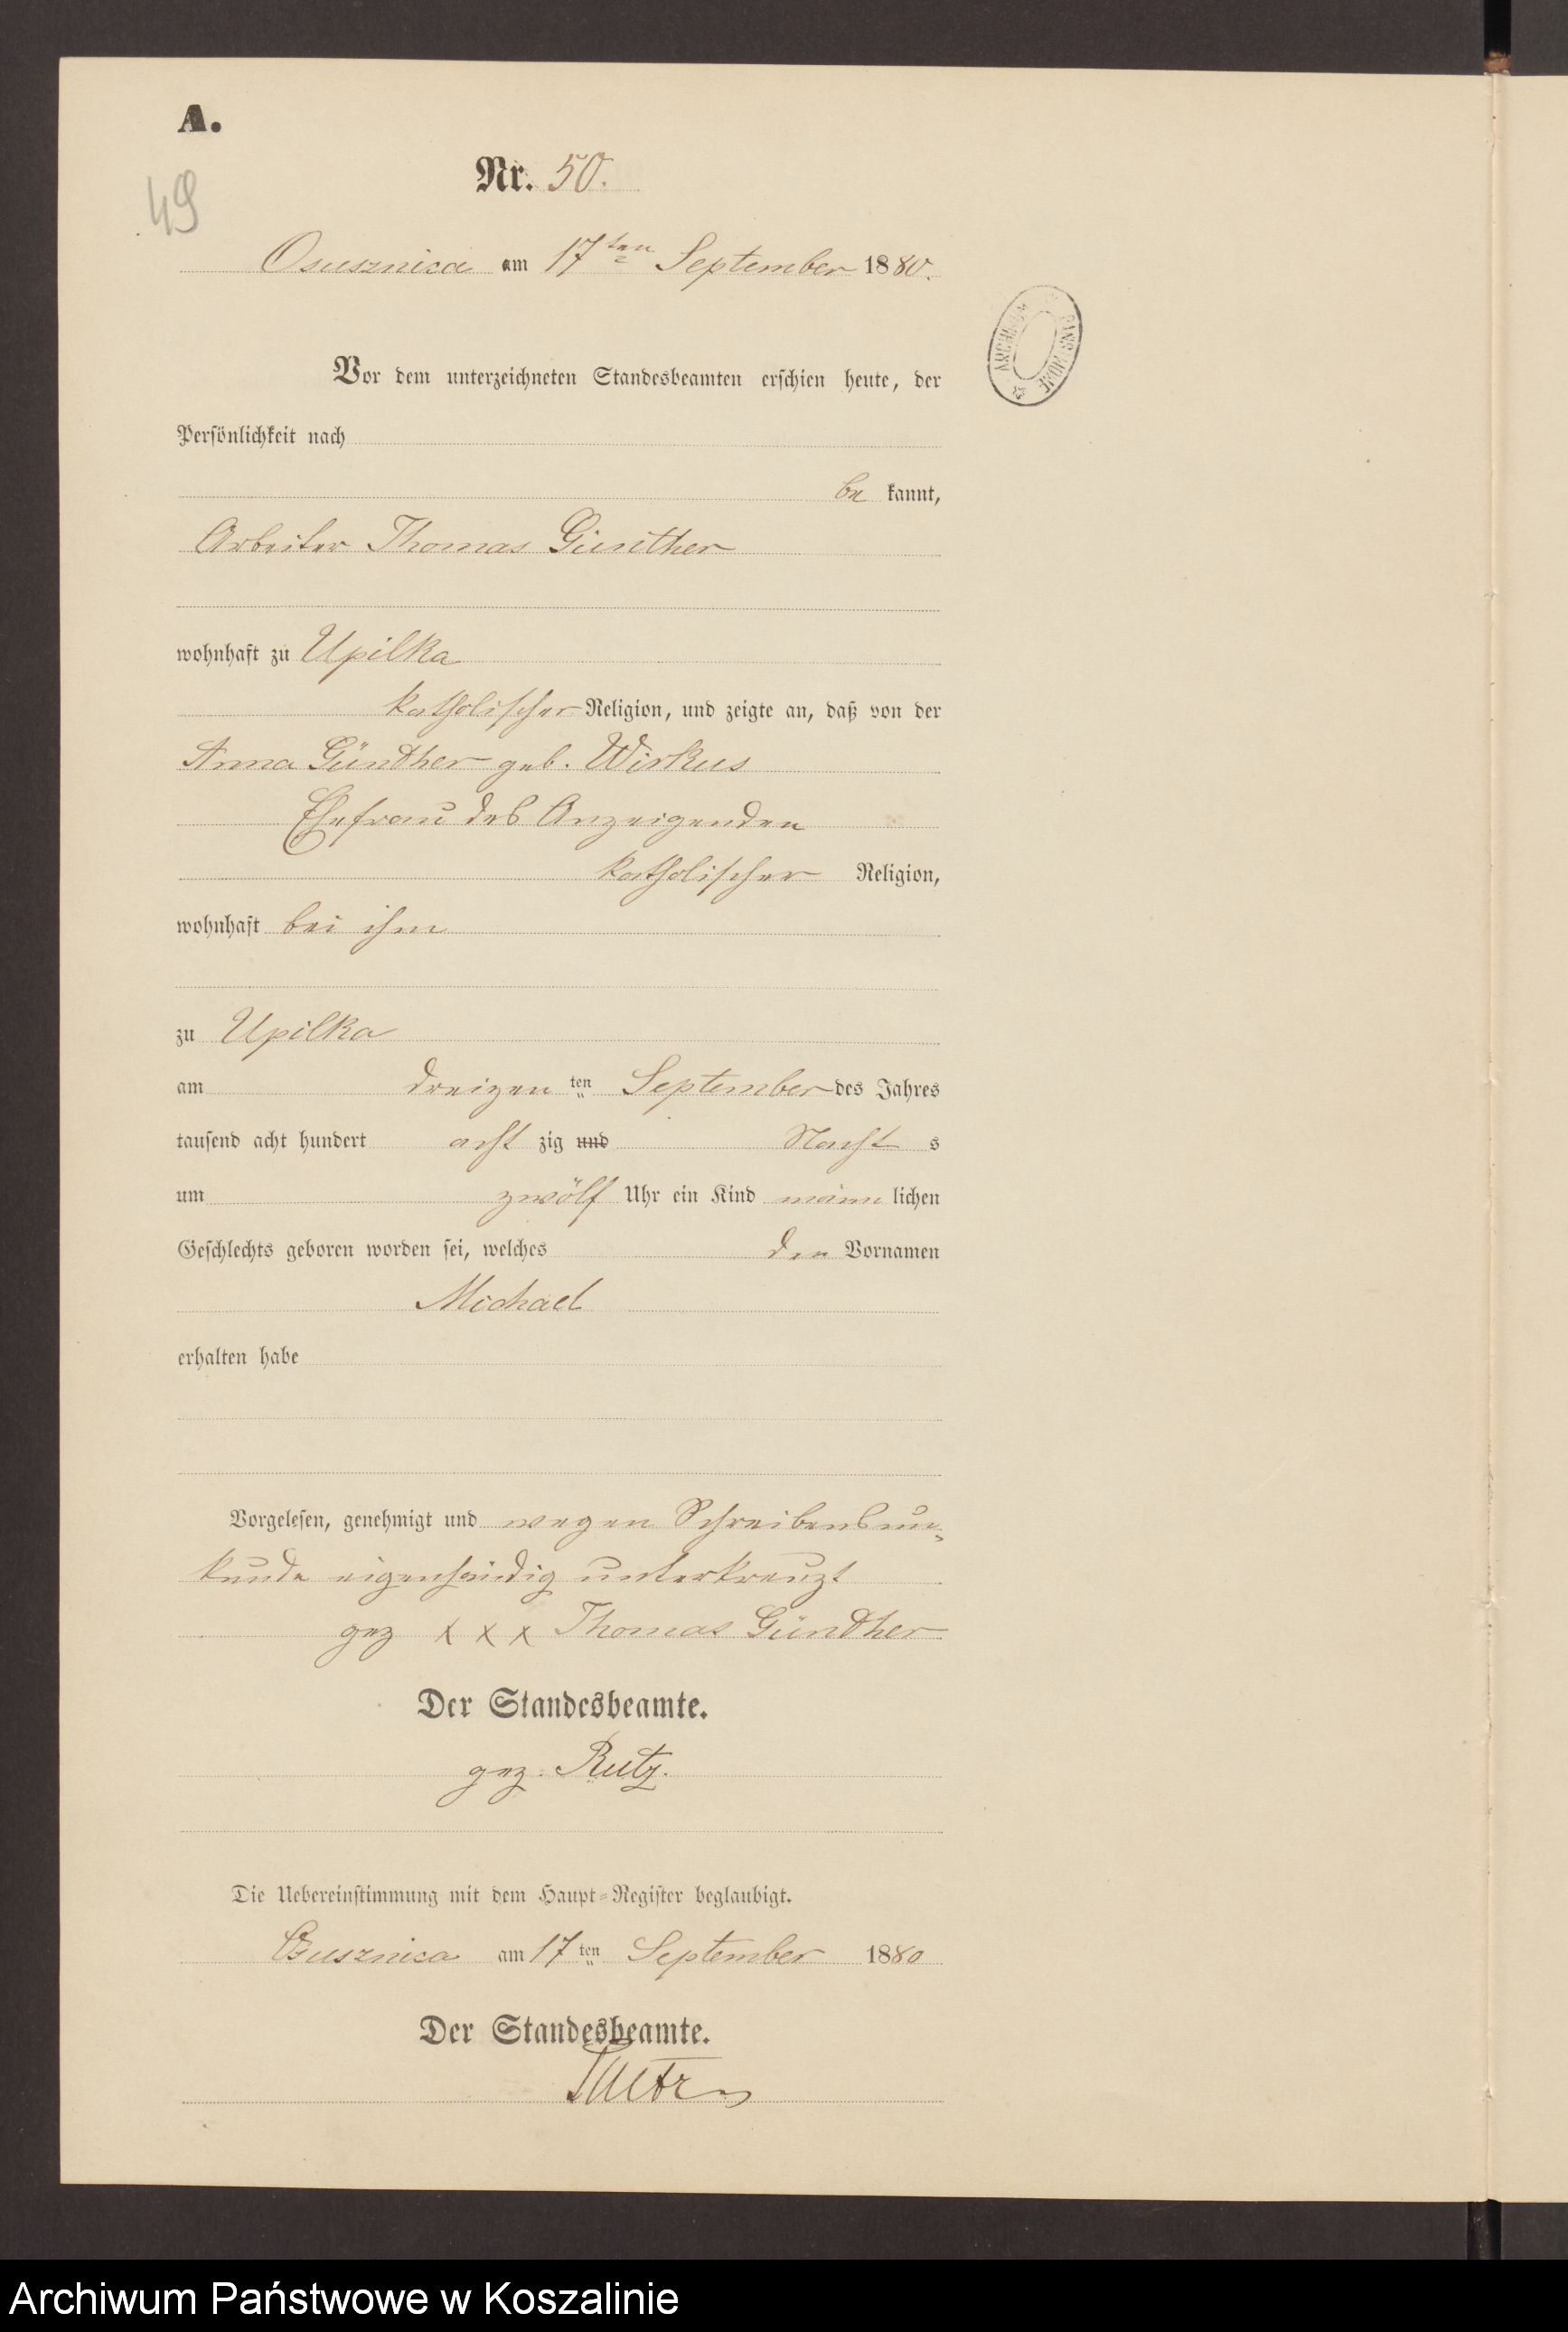 A.
49
Nr. 50.
Osusznica am 17ten September 1880.
ARCHIWUM PAŃSTWOWE
Vor dem unterzeichneten Standesbeamten erschien heute, der
Persönlichkeit nach
be kannt,
Arbeiter Thomas Günther
wohnhaft zu Upilka
katholischer Religion, und zeigte an, daß von der
Anna Günther geb. Wirkus
Ehefrau des Anzeigenden
katholischer Religion,
wohnhaft bei ihm
zu Upilka
am dreizen ten September des Jahres
tausend acht hundert acht zig und Nacht s
um zwölf Uhr ein Kind männ lichen
Geschlechts geboren worden sei, welches den Vornamen
Michael
erhalten habe
Vorgelesen, genehmigt und wegen Schreibensun-
kunde eigenhändig unterkreuzt
gez x x x Thomas Günther
Der Standesbeamte.
gez. Rutz.
Die Uebereinstimmung mit dem Haupt-Register beglaubigt.
Osusznica am 17 ten September 1880
Der Standesbeamte.
Rutz
Archiwum Państwowe w Koszalinie